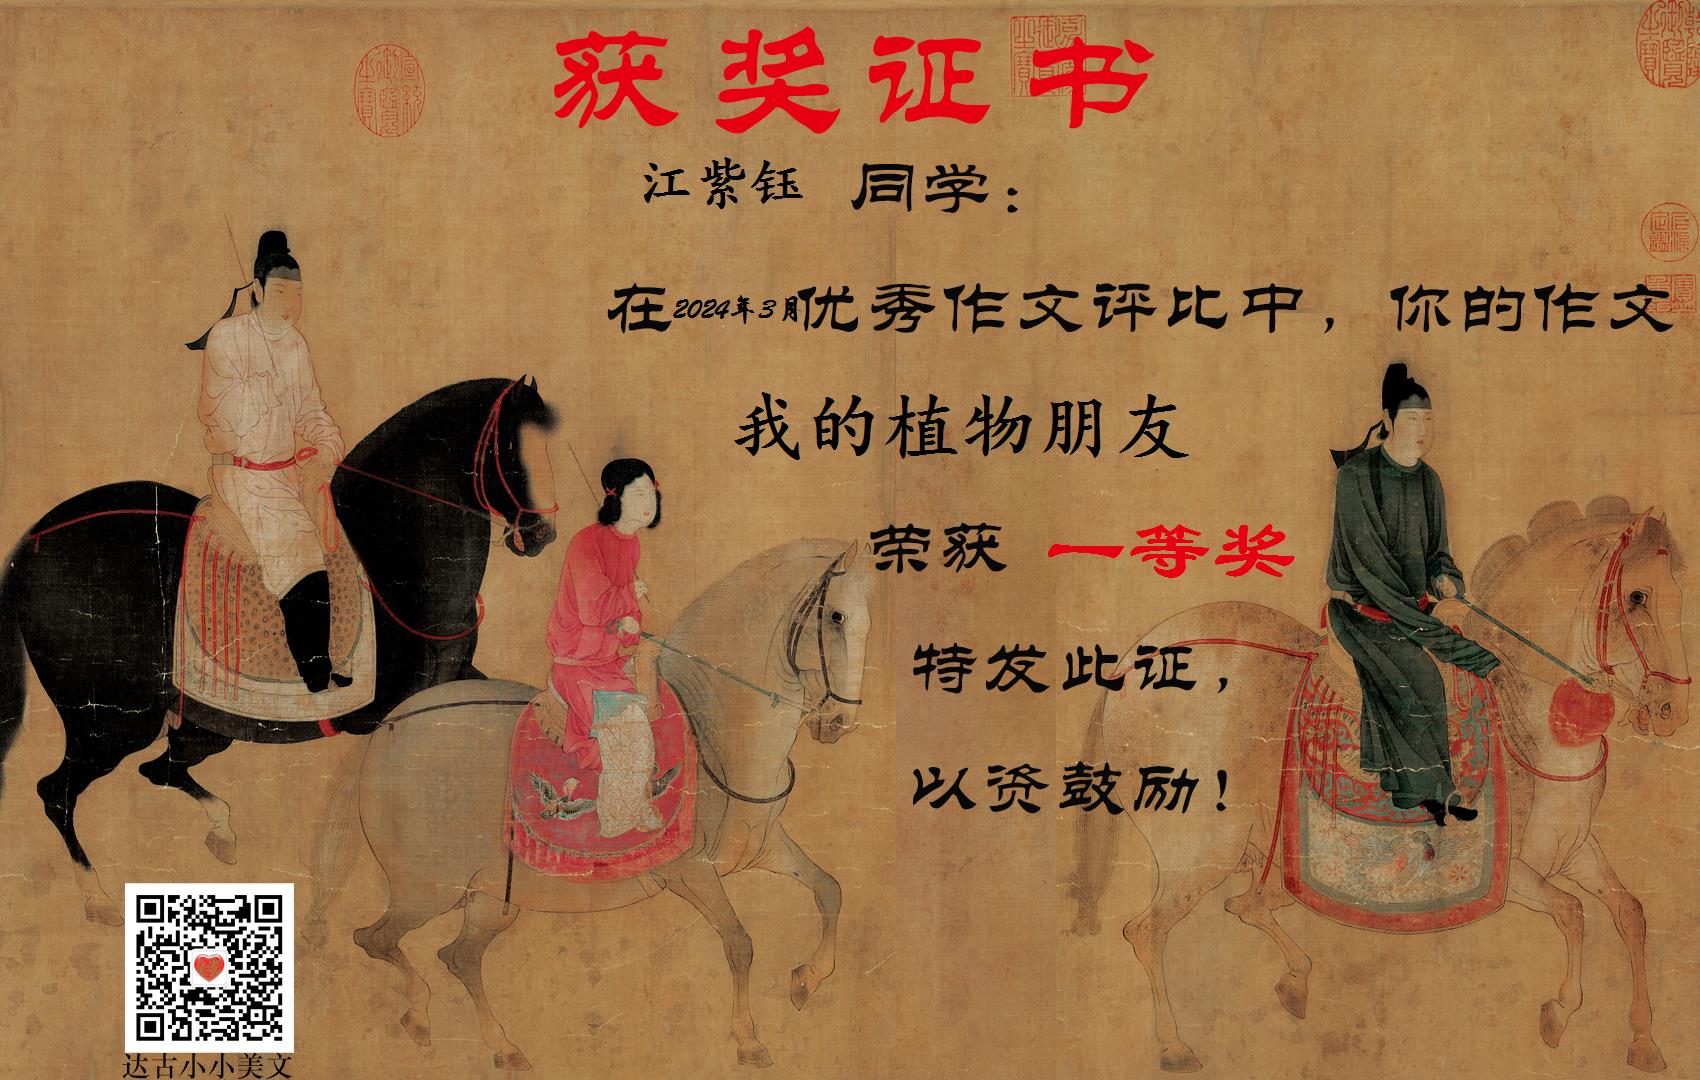 获奖证书
江紫钰 同学：
在2024年3月优秀作文评比中，你的作文
我的植物朋友
荣获 一等奖
特发此证，
以资鼓励！
达古小小美文